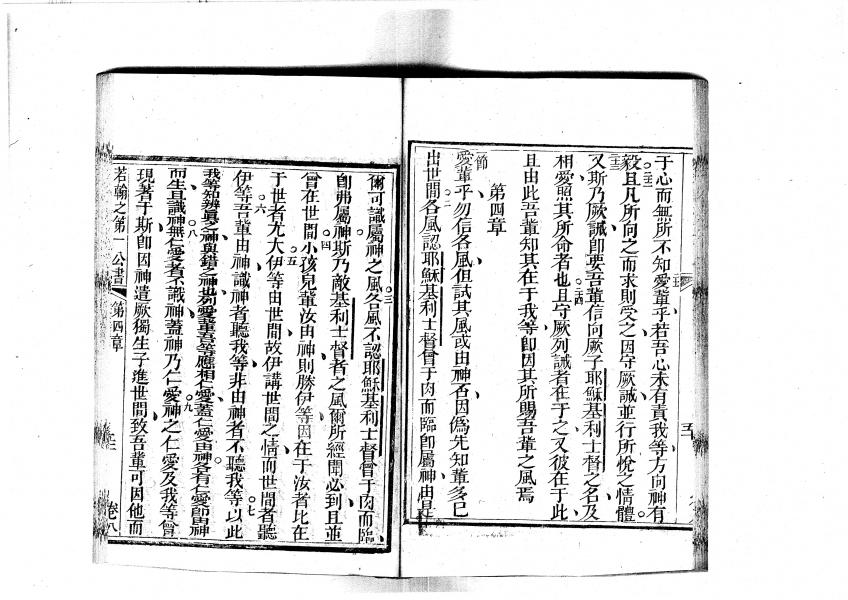 于心而無所不知愛輩乎若吾心未有責我等方向神有
毅且凡所向之而求則受之因守厥誡並行所悅之情體
又斯乃厥誡卽要吾輩信向厥子耶穌基利士督之名及
相愛照其所命者也且守厥列誡者在于之又彼在于此
且由此吾輩知其在于我等卽因其所賜吾輩之風焉
第四章
愛輩乎勿信各風但試其風或由神否因僞先知輩多已
出世間各風認耶穌基利士督曾于肉而臨卽屬神由是
爾可識屬神之風各風不認耶穌基利士督曾于肉而臨
卽弗屬神斯乃敵基利士督者之風爾所經聞必到且並
曾在世間小孩兒輩汝由神則勝伊等因在于汝者比在
于世者尤大伊等由世間故伊講世間之情而世間者聽
伊等吾輩由神識神者聽我等非由神者不聽我等以此
我等知辨真之神與錯之神也列愛輩吾等應相仁愛蓋仁愛由神各有仁愛卽由神
而生且識神無仁愛者不識神蓋神乃仁愛神之仁愛及我等曾
現著于斯卽因神遣厥獨生子進世間致吾輩可因他而
若翰之第一公書 第四章